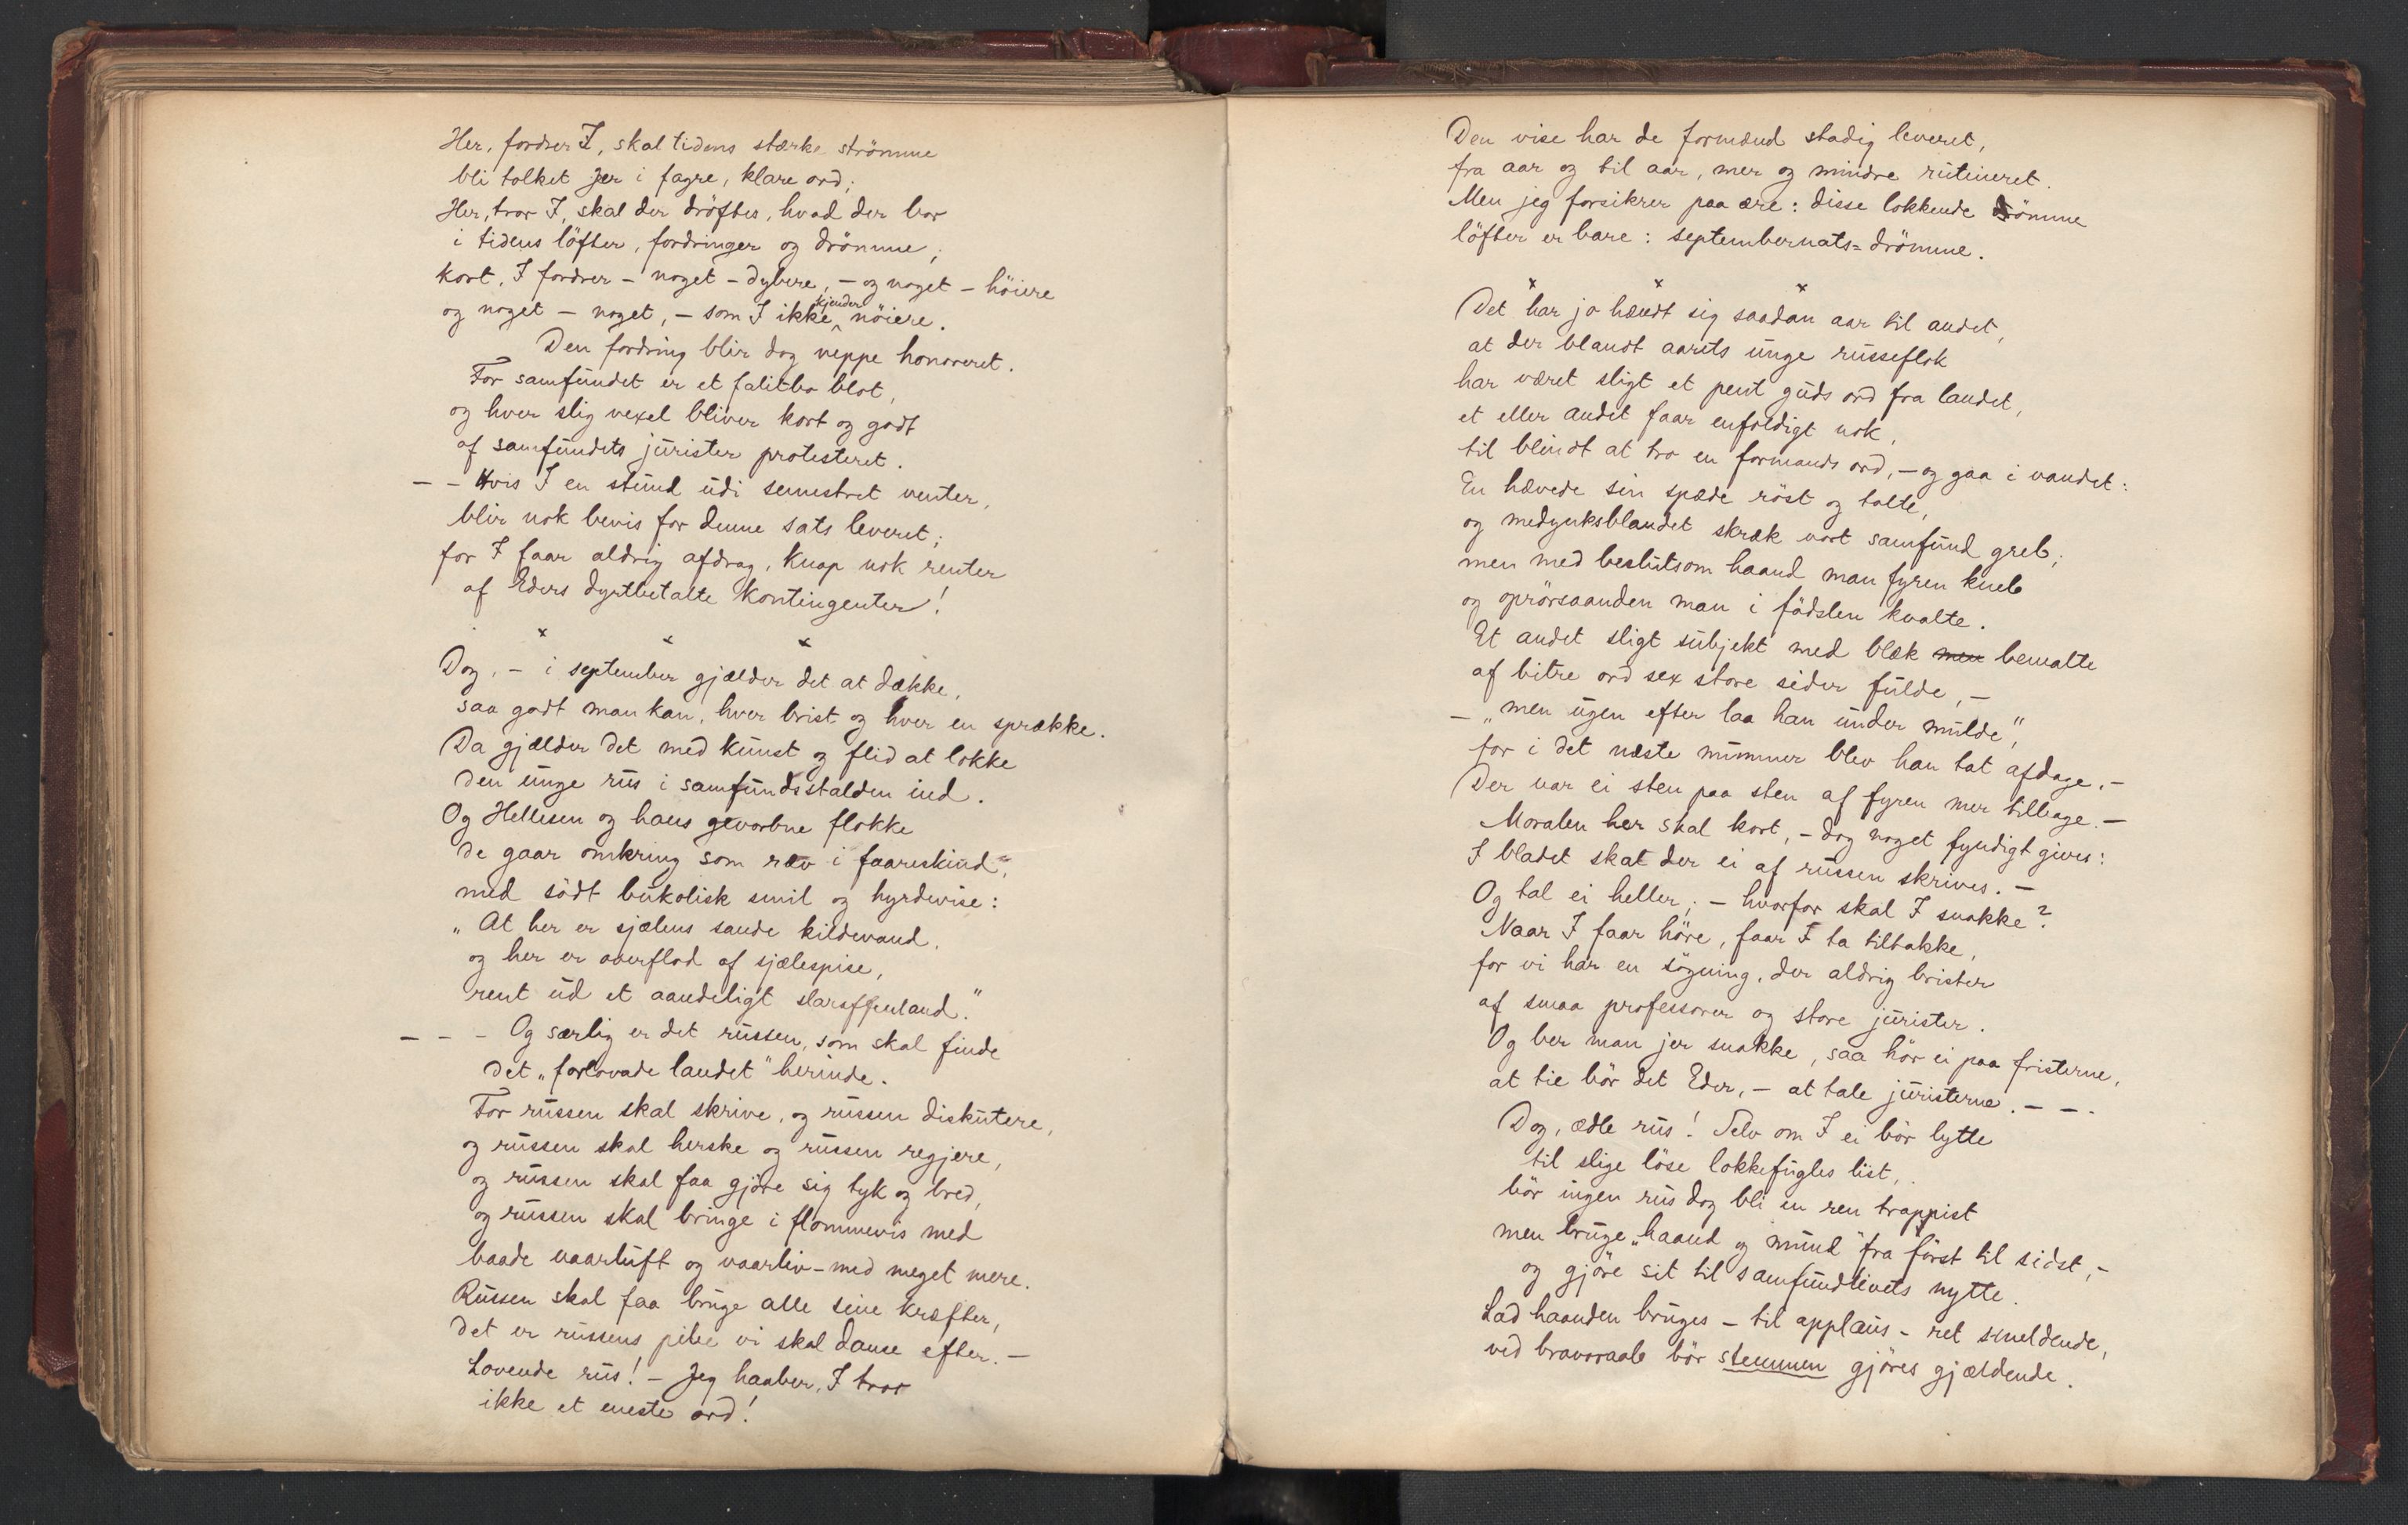 Her, fordrer I, skal tidens stærke strömme
bli tolket Jer i fagre, klare ord;
Her, tror I, skal der dröftes, hvad der bor
i tidens löfter, fordringer og drömme;
kort, I fordrer – noget – dybere, – og noget – höiere
og noget – noget, – som I ikke kjender nöiere.
Den fordring blir dog neppe honoreret.
For samfundet er et falitbo blot,
og hver slig vexel bliver kort og godt
af samfundets jurister protesteret.
– – Hvis I en stund udi semestret venter,
blir nok bevis for denne sats leveret;
for I faar aldrig afdrag, knap nok renter
af Eders dyrtbetalte kontingenter!
x x x
Dog, – i september gjælder det at dække,
saa godt man kan, hver brist og hver en sprække.
Da gjælder det med kunst og flid at lokke
den unge rus i samfundsstalden ind.
Og Hellesen og hans gevorbne flokke
de gaar omkring som ræv i faareskind",
med södt bukolisk smil og hyrdevise:
„At her er sjælens sande kildevand,
og her er overflod af sjælespise,
rent ud et aandeligt slaraffenland."
– – – Og særlig er det russen, som skal finde
det „forlovade landet" herinde.
For russen skal skrive, og russen diskutere,
og russen skal herske og russen regjere,
og russen skal faa gjöre sig tyk og bred,
og russen skal bringe i flommevis med
baade vaarluft og vaarliv – med meget mere.
Russen skal faa bruge alle sine kræfter,
det er russens pibe vi skal danse efter. –
Lovende rus! – Jeg haaber, I tror
ikke et eneste ord!
Den vise har de formænd stadig leveret,
fra aar og til aar, mer og mindre rutineret.
Men jeg forsikrer paa ære: disse lokkende drömme
löfter er bare: septembernats-drömme.
x x x
Det har jo hændt sig saadan aar til andet,
at der blandt aarets unge russeflok
har været sligt et pent guds ord fra landet,
et eller andet faar enfoldigt nok,
til blindt at tro en formands ord, – og gaa i vandet:
En hævede sin spæde röst og talte,
og medynksblandet skræk vort samfund greb;
men med beslutsom haand man fyren kneb
og oprörsaanden man i födslen kvalte.
Et andet sligt subjekt med blæk men bemalte
af bitre ord sex store sider fulde, –
– „men ugen efter laa han under mulde",
for i det næste nummer blev han tat afdage. –
Der var ei sten paa sten af fyren mer tilbage. –
Moralen her skal kort, – dog noget fyndigt gives:
I bladet skal der ei af russen skrives. –
Og tal ei heller; – hvorfor skal I snakke?
Naar I faar höre, faar I ta tiltakke,
for vi har en sögning, der aldrig brister
af smaa professorer og store jurister.
Og ber man jer snakke, saa hör ei paa fristerne,
at tie bör det Eder, – at tale juristerne. – – .
Dog, ædle rus! Selv om I ei bör lytte
til slige löse lokkefugles list,
bör ingen rus dog bli en ren trappist
men bruge „haand og mund" fra först til sidst, –
og gjöre sit til samfundlivets nytte.
Lad haanden bruges – til applaus – ret smeldende,
ved bravoraab bör stemmen gjöres gjældende.